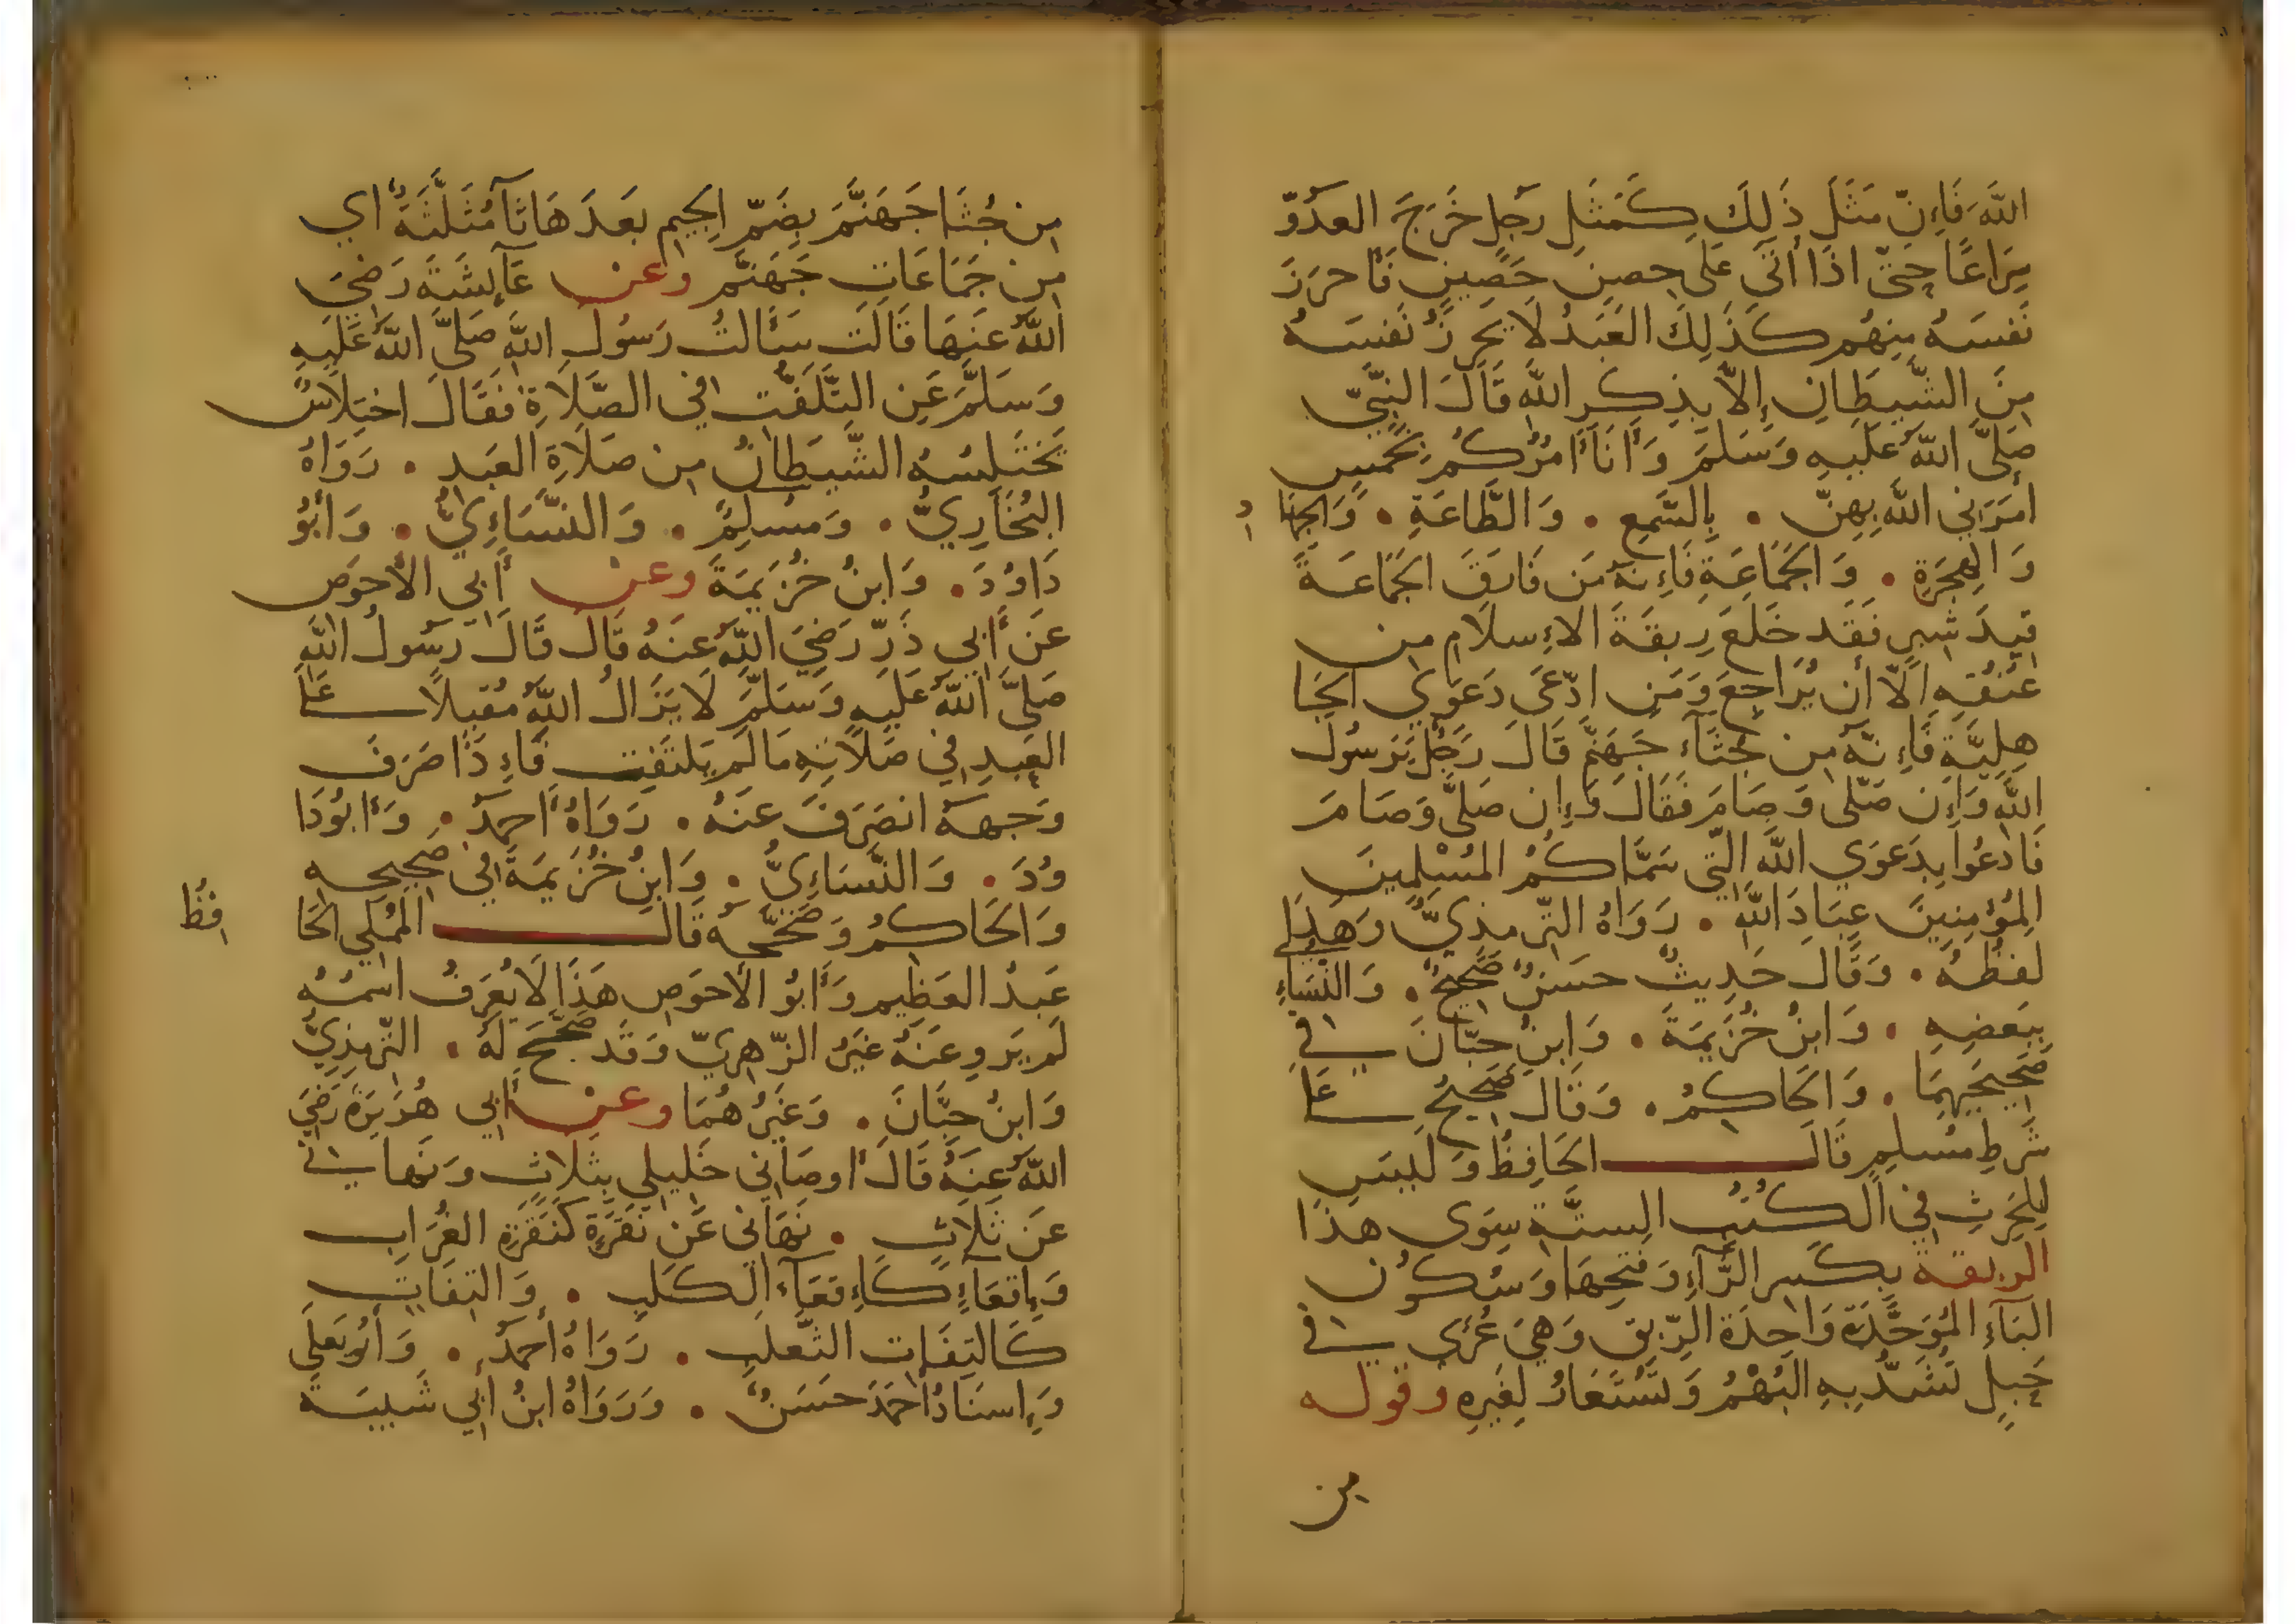 اللَّهَ فَإِنَّ مَثَلَ ذَلِكَ كَمَثَلِ رَجُلٍ خَرَجَ العَدُوّ
سِرَاعًا حَتَّى اذَا أَتَى عَلَى حِصنٍ حَصِينٍ فَأَحرَزَ
نَفسَهُ مِنهُم كَذَلِكَ العَبدُ لَا يَحرِزُ نَفسَهُ
مِنَ الشَّيطَانِ إِلاَّ بِذِكرِ اللَّهِ قَالَ النَّبِيّ
صَلَّى اللَّهُ عَلَيهِ وَسَلَّمَ وَأَنَا أَامُرُكُم بِخَمسٍ
امَرَنِي اللَّهُ بِهِنَّ . بِالسَّمعِ . وَالطَّاعَةِ . وَالجِهَا د
وَالهِجرَةِ . وَالجَمَاعَةِ فَإِنَّهُ مَن فَارَقَ الجَمَاعَةَ
قِيدَ شِبرٍ فَقَد خَلَعَ رِبقَةَ الإِسلَامِ مِن
عُنُقِهِ الاَّ أَن يُرَاجِعَ وَمَنِ ادَّعَى دَعوَى الجَا
هِلِيَّةِ فَإِنَّهُ مِن جُثَاءِ جَهَنَّمَ قَالَ رَجُلٌ يَرَسُولَ
اللَّهِ وَإِن صَلَّى وَصَامَ فَقَالَ وَإِن صَلَّى وَصَامَ
فَادعُوا بِدَعوَى اللَّهِ الَّتِي سَمَّاكُمُ المُسْلِمِينَ
المُؤمِنِينَ عِبَادَ اللَّهِ . رَوَاهُ التِّرمذِيُّ وَهَذَا
لَفظُهُ . وَقَال حَدِيثٌ حَسَنٌ صَحِيحٌ . وَالنَّسَاءِ
بِبَعضِهِ . وَابنُ خُزَيمَةَ . وَابنُ حِبَّانَ فِي
صَحِيحَيهِمَا . وَالحَاكِمُ . وَقَالَ صَحِيحٌ عَلَى
شَرطِ مُسلِمٍ قَالَ الحَافِظُ وَلَيسَ
لِلحَرِثِ فِي الكُتُبِ السِتَّةِ سِوَى هذَا
الربقة بِكَسرِ الرَّآءِ وَفَتحِهَا وَسُكُونِ
البَآءِ المُوَحَّدَةِ وَاحِدَة الرِّبقِ وَهِيَ عُرًى فِي
حَبلٍ تُشَدُّ بِهِ البُهْمُ وَتُسْتَعَارُ لِغَيرِهِ وقوله
من
مِن جُثَا جَهَنَّمَ بِضَمِّ الجِيمِ بَعدَهَا ثَآ مُثَلَّثَةٌ اي
مِن جَمَاعَاتِ جَهَنَّم وعن عَآئِشَةَ رَضِيَ
اللَّهُ عَنهَا قَالَت سَأَلتُ رَسُولَ اللَّهِ صَلَّى اللَّهُ عَلَيهِ
وَسَلَّمَ عَنِ التَّلَفُّتِ فِي الصَّلَاةِ فَقَالَ اختِلَاسٌ
يَختَلِسُهُ الشَّيطَانُ مِن صَلَاةِ العَبدِ . رَوَاهُ
البُخَارِيُّ . وَمُسلِمٌ . وَالنَّسَاءِيُّ . وَأَبُو
دَاوُدَ . وَابنُ خُزَيمَةَ وعن أَبِي الأَحوَصِ
عَن أَبِي ذَرٍّ رَضِيَ اللَّهُ عَنهُ قَالَ قَالَ رَسُولُ اللَّهِ
صَلَّى اللَّهُ عَلَيهِ وَسَلَّمَ لَا يَزَالُ اللَّهُ مُقبِلًا عَلَى
العَبدِ فِي صَلَاتِهِ مَا لَم يَلتَفِت فَإِذَا صَرَفَ
وَجهَهُ انصَرَفَ عَنهُ . رَوَاهُ أَحمَدُ . وَأَبُودَا
وُدَ . وَالنَّسَاءِيُّ . وَابنُ خُزَيمَةَ فِي صَحِيحِهِ
وَالحَاكِمُ وَصَحَّحَهُ قَالَ المُملِي الحَا فِظُ
عَبدُ العَظِيمِ وَأَبُو الأَحوَصِ هَذَا لَا يُعرَفُ اسمُهُ
لَم يَروِ عَنهُ غَيرُ الزُّهرِيِّ وَقَد صَحَّحَ لَهُ . التِّرمِذِيُّ
وَابنُ حِبَّانَ . وَغَيرُهُمَا وعن أَبِي هُرَيرَةَ رَضِيَ
اللَّهُ عَنهُ قَالَ أَوصَانِي خَلِيلِي بِثَلَاثٍ وَنَهانِي
عَن ثَلَاثٍ . نَهَانِي عَن نَقرَةٍ كَنَقرَةِ الغُرَابِ
وَإِقعَآءٍ كَإِقعَآءِ الكَلبِ . وَالتِفَاتٍ
كَالتِفَاتِ الثَّعلَبِ . رَوَاهُ أَحمَدُ . وَأَبُو يَعلَى
وَإِسنَادُ أَحمَدَ حَسَنٌ . وَرَوَاهُ ابنُ أَبِي شَيبَةَ